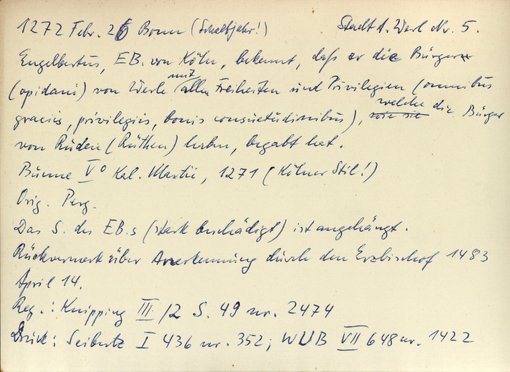 1272 Febr. 26 Bonn (Schaltjahr!) Stadt A. Werl Nr. 5.
Engelbertus, EB. von Köln, bekennt, daß er die Bürger
(opidani) von Werle mit allen Freiheiten und Privilegien (omnibus
graciis, privilegiis, bonis consuetudinibus), wie sie welche die Bürger
von Rüden (Rüthen) haben, begabt hat.
Bunne V° Kal. Martii, 1271 (Kölner Stil!)
Orig. Perg.
Das S. des EB.s (stark beschädigt) ist angehängt.
Rückvermerk über Anerkennung durch den Erzbischof 1483
April 14.
Reg.: Knipping III/2 S. 49 nr. 2474
Druck: Seibertz I 436 nr. 352; WUB VII 648 nr. 1422